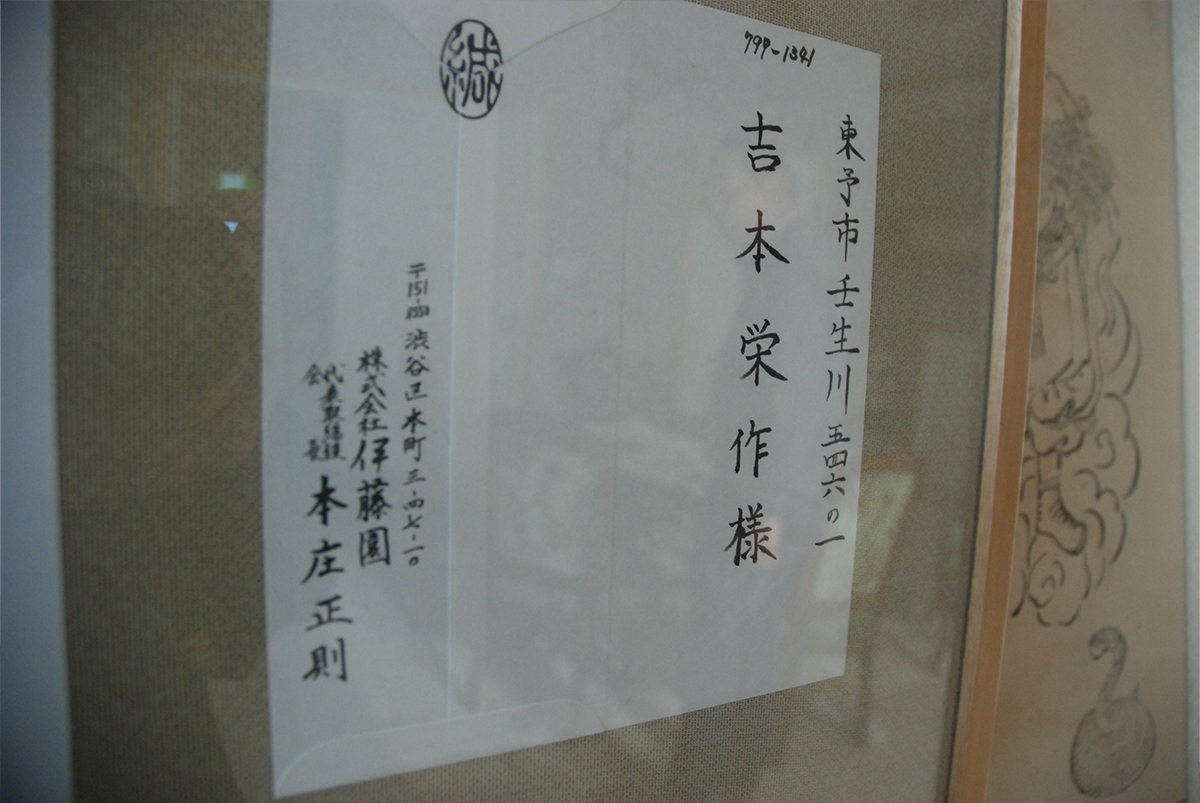 799-1341
東予市壬生川五四六の一
吉本栄作様
緘
〒151-渋谷区本町三-四七-一〇
株式会社伊藤園
代表取締役
会長
本庄正則